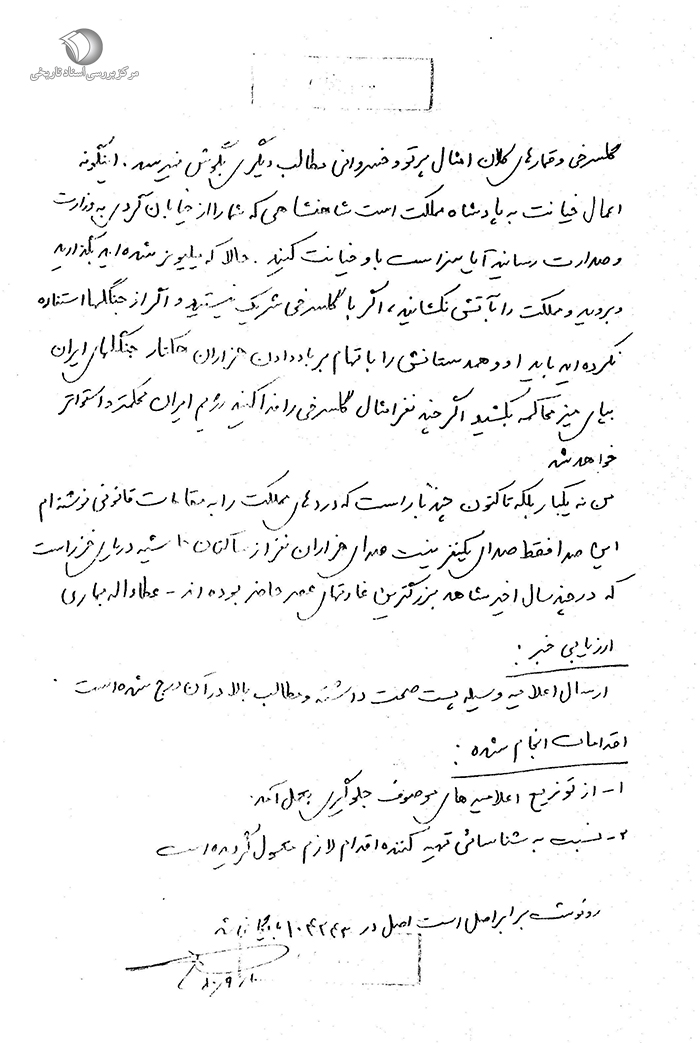 مرکز بررسی اسناد تاریخی
گلسرخی و قمارهای کلان امثال پرتو و خسروانی مطالب دیگری بگوش نمیرسد. اینگونه
اعمال خیانت به پادشاه مملکت است شاهنشاهی که شما را از خیابان گردی به وزارت
و صدارت رسانید آیا سزاست با و خیانت کنید. حالا که میلیونر شده اید بگذارید
و بروید و مملکت را بآتش نکشانید، اگر با گلسرخی شریک نیستید و اگر از جنگلها استفاده
نکرده اید باید او و همدستانش را با تهام بر باد دادن هزاران هکتار جنگلهای ایران
بپای میز محاکمه بکشید اگر چند نفر امثال گلسرخی را فدا کنید رژیم ایران محکمتر و استوارتر
خواهد شد
من نه یکبار بلکه تا کنون چند بار است که دردهای مملکت را به مقامات قانونی نوشته ام
این صدا فقط صدای یکنفر نیست صدای هزاران نفر از ساکنان حاشیه دریای خزر است
که در چند سال اخیر شاهد بزرگترین غارتهای عصر حاضر بوده اند - عطاءاله بهاری
ارزیابی خبر:
ارسال اعلامیه وسیله پست صحت داشته و مطالب بالا در آن درج شده است.
اقدامات انجام شده:
۱- از توزیع اعلامیه های موصوف جلوگیری بعمل آمد.
۲- نسبت به شناسائی تهیه کننده اقدام لازم معمول گردیده است
رونوشت برابر اصل است اصل در ۱۰۴۲۴۳ بایگانی شد